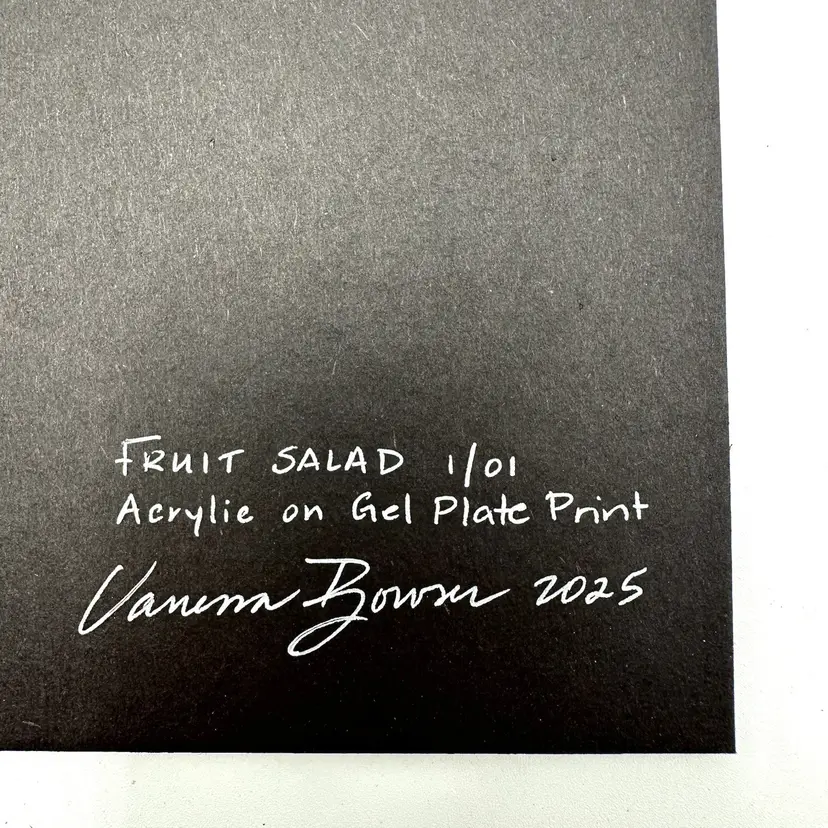 FRUIT SALAD 1/01
Acrylic on Gel Plate Print
Vanessa Bowser 2025